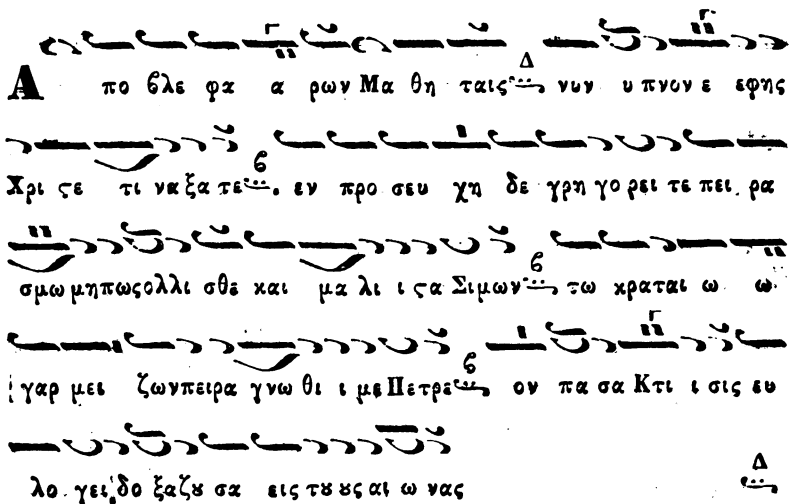 Α πο βλε φα α ρων Μα θη ταις Δ νυν υ πνον ε εφης
Χρι ϛε τι να ξα τε β . εν προ σευ χη δε γρη γο ρει τε πει ρα
σμω μη πως ολλι σθε και μα λι ι ϛα Σιμων β τω κραται ω ω
γαρ μει ζων πειρα γνω θι ι με Πετρε β ον πα σα Κτι ι σις ευ
λο γει δο ξαζȣ σα εις τȣ ȣς αι ω νας Δ